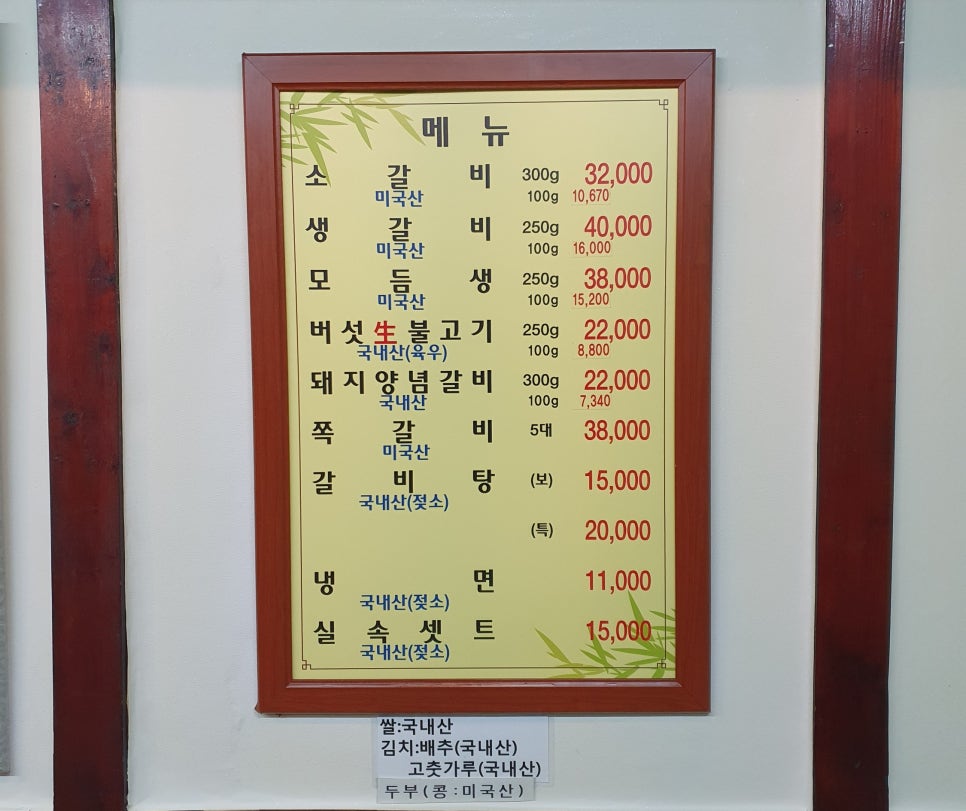 메 뉴
소 갈 비 300g 32,000
미국산 100g 10,670
생 갈 비 250g 40,000
미국산 100g 16,000
모 듬 생 250g 38,000
미국산 100g 15,200
버 섯 生 불 고 기 250g 22,000
국내산(육우) 100g 8,800
돼 지 양 념 갈 비 300g 22,000
국내산 100g 7,340
쪽 갈 비 5대 38,000
미국산
갈 비 탕 (보) 15,000
국내산(젖소)
(특) 20,000
냉 면 11,000
국내산(젖소)
실 속 셋 트 15,000
국내산(젖소)
쌀:국내산
김치:배추(국내산)
고춧가루(국내산)
두부(콩:미국산)